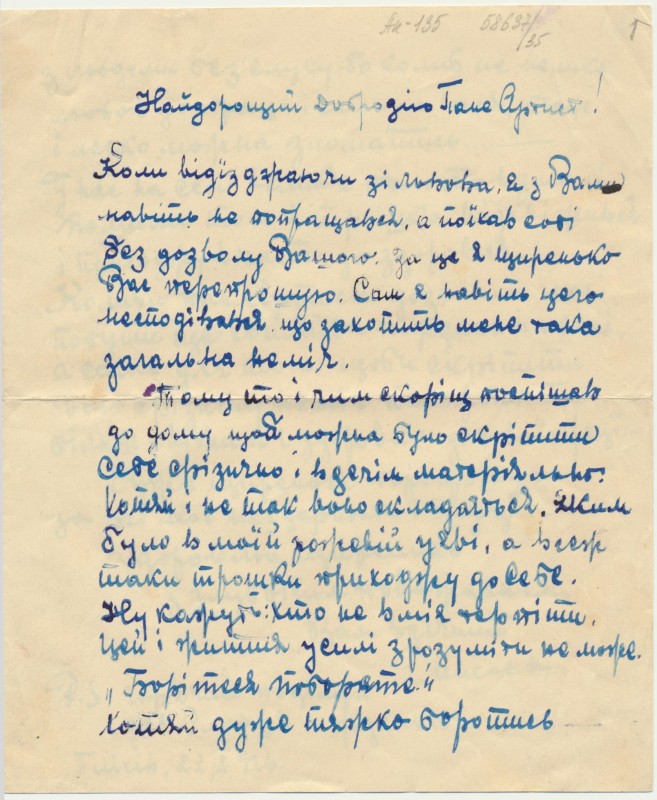 Ак-135 58637/35 1
Найдорощий Добродію Пане Артист!
Коли відїзджаючи зі Львова, я з Вами
навіть не попращався, а поїхав собі
без дозволу Вашого. За це я щиренько
Вас перепрошую. Сам я навіть цего
несподівався, що захопить мене така
загальна неміч.
Тому то і чим скоріщ поспішав
до дому щоб можна було скріпити
себе фізично і вдечім матеріяльно.
Хотяй і не так воно складаєтьсся, яким
було в моїй рожевій уяві, а всеж
таки трошки приходжу до себе.
Ну кажуть: хто не вмія терпіти,
цей і життя усилі зрозуміти не може.
„Борітеся поборете!"
Хотяй дуже тяжко боротись